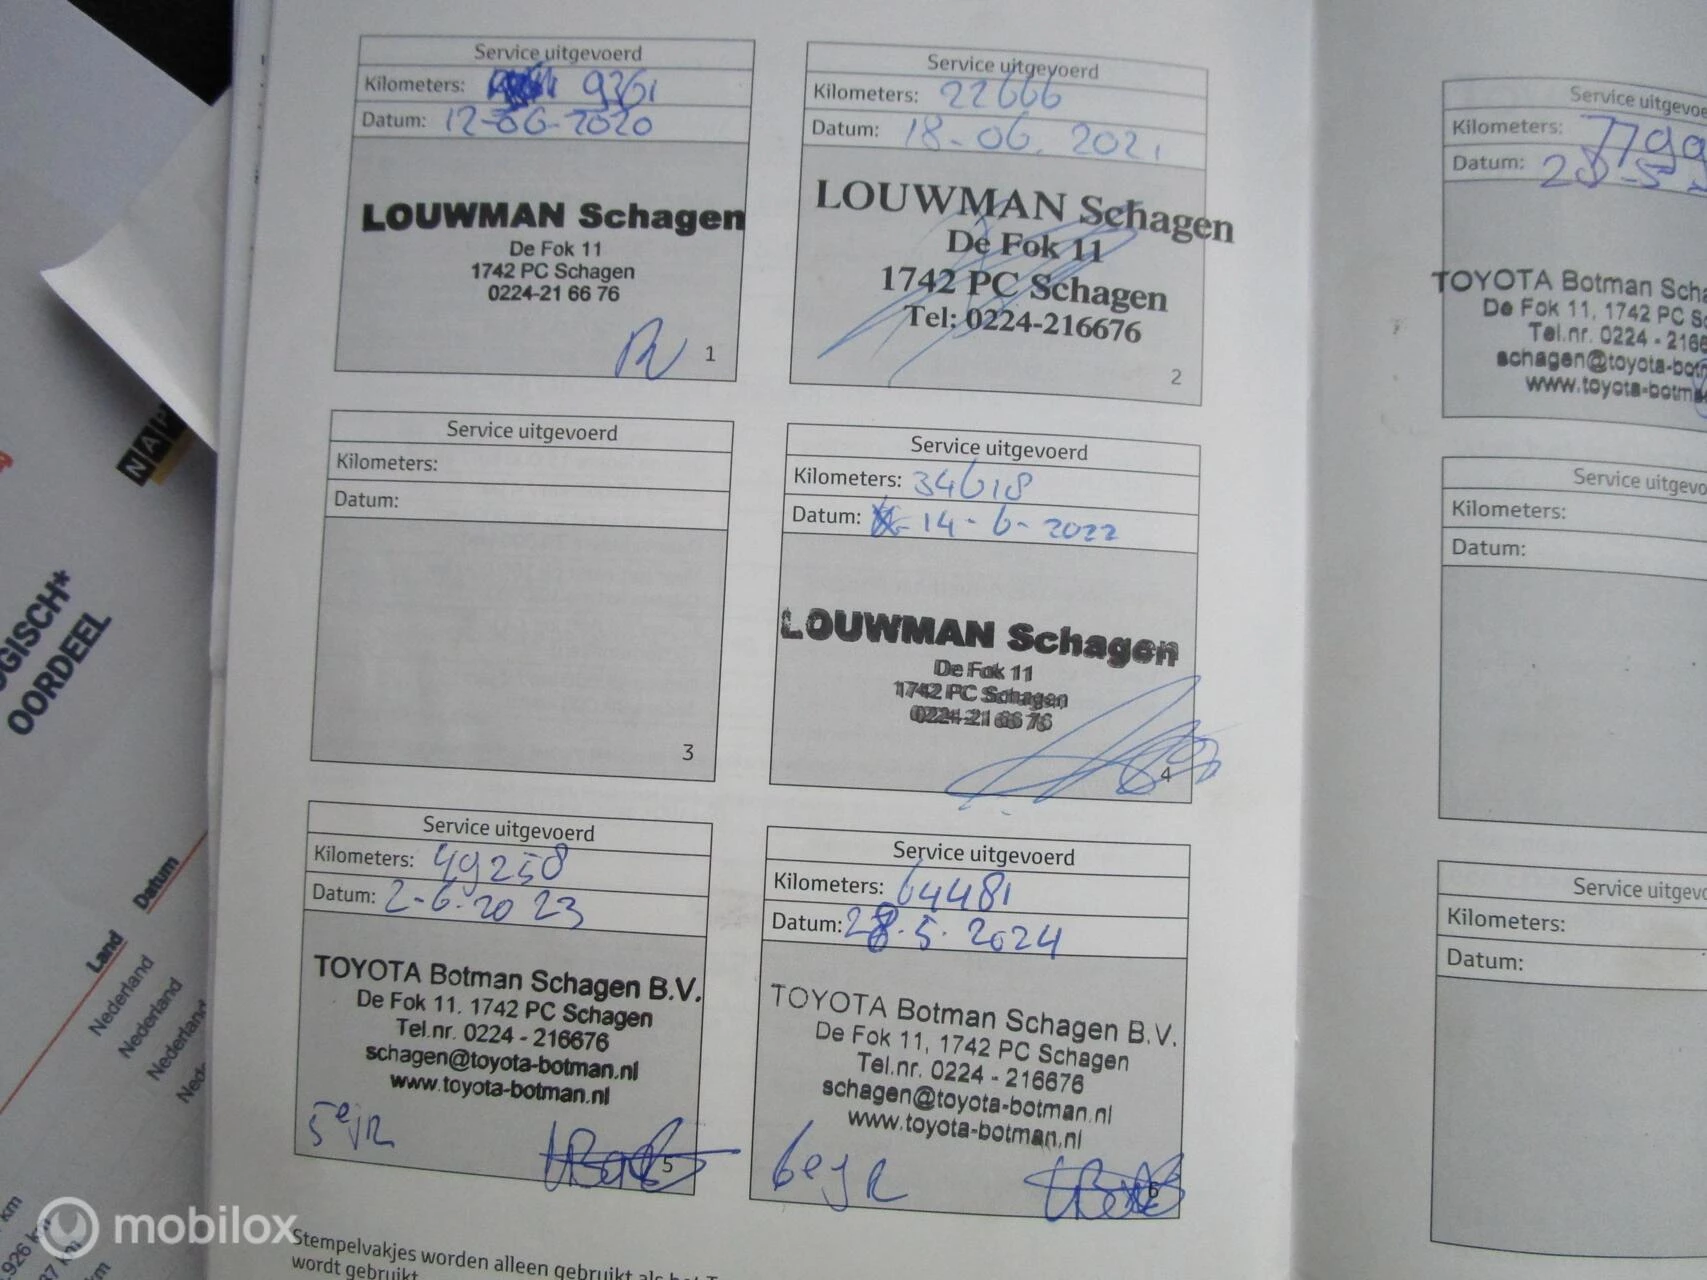 Service uitgevoerd
Kilometers: 9361
Datum: 12-06-2020
LOUWMAN Schagen
De Fok 11
1742 PC Schagen
0224-21 66 76
1
Service uitgevoerd
Kilometers: 22666
Datum: 18-06.2021
LOUWMAN Schagen
De Fok 11
1742 PC Schagen
Tel: 0224-216676
2
Service uitgevoerd
Kilometers:
Datum:
3
Service uitgevoerd
Kilometers: 34618
Datum: 14-6-2022
LOUWMAN Schagen
De Fok 11
1742 PC Schagen
0224-21 66 76
4
Service uitgevoerd
Kilometers: 49258
Datum: 2-6-2023
TOYOTA Botman Schagen B.V.
De Fok 11, 1742 PC Schagen
Tel.nr. 0224 - 216676
schagen@toyota-botman.nl
www.toyota-botman.nl
5e jr
5
Service uitgevoerd
Kilometers: 64481
Datum: 28.5.2024
TOYOTA Botman Schagen B.V.
De Fok 11, 1742 PC Schagen
Tel.nr. 0224 - 216676
schagen@toyota-botman.nl
www.toyota-botman.nl
6e jr
6
Stempelvakjes worden alleen gebruikt als het
wordt gebruikt
Service uitgevoe
Kilometers: 7799
Datum: 20-5-
TOYOTA Botman Scha
De Fok 11, 1742 PC Sc
Tel.nr. 0224 - 2166
schagen@toyota-botm
www.toyota-botma
Service uitgevo
Kilometers:
Datum:
Service uitgevo
Kilometers:
Datum:
NAP
OGISCH*
OORDEEL
Datum
Land
Nederland
Nederland
Nederland
Ned
km
.926 km
87 km
km
mobilox